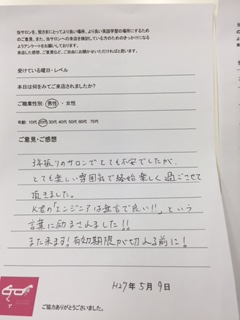 当サロンを、皆さまにとってより良い場所、より良い英語学習の場所にするため
のご意見、また、当サロンへの来店を検討している方のためのきっかけになる
ようアンケートをお願いしております。
来店した感想、ご意見など、ご自由にお聞かせいただければと思います。
受けている曜日・レベル
本日は何をみてご来店されましたか?
ご職業性別: 男性 ・ 女性
年齢: 10代 20代 30代 40代 50代 60代 70代
ご意見・ご感想
3年振りのサロンでとても不安でしたが、
とても楽しい雰囲気で終始楽しく過ごさせて
頂きました。
K君の「エンジニアは無言で良い!!」という
言葉に励まされました!!
また来ます!有効期限が切れる前に!
H27年5月9日
ご協力ありがとうございました。